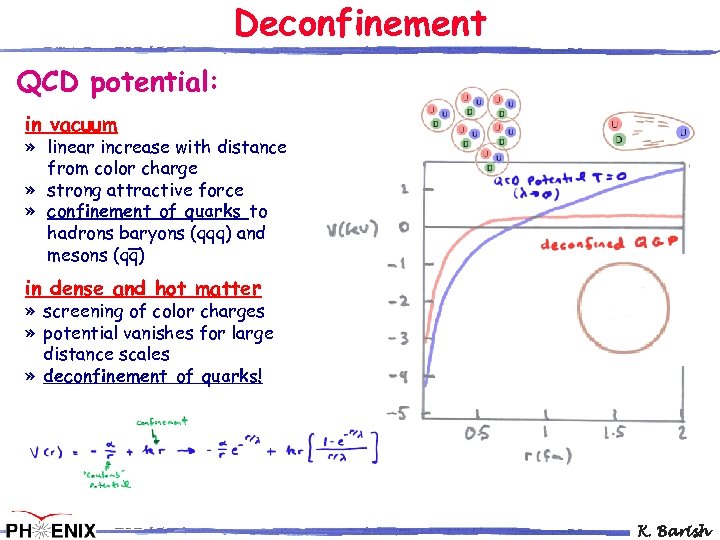 Deconfinement
QCD potential:
in vacuum
» linear increase with distance
from color charge
» strong attractive force
» confinement of quarks to
hadrons baryons (qqq) and
mesons (qq̅)
in dense and hot matter
» screening of color charges
» potential vanishes for large
distance scales
» deconfinement of quarks!
U U D U U D U U D
U U D U U D
U U D
U D U
QCD Potential T=0
(λ→∞)
1
V(keV) 0
deconfined QGP
-1
-2
-3
-4
-5
0.5 1 1.5 2
r(fm)
confinement
V(r) = - α/r + kr → - α/r e^{-r/λ} + kr [ (1-e^{-r/λ}) / (r/λ) ]
"Coulomb"
Potential
PHENIX
K. Barish